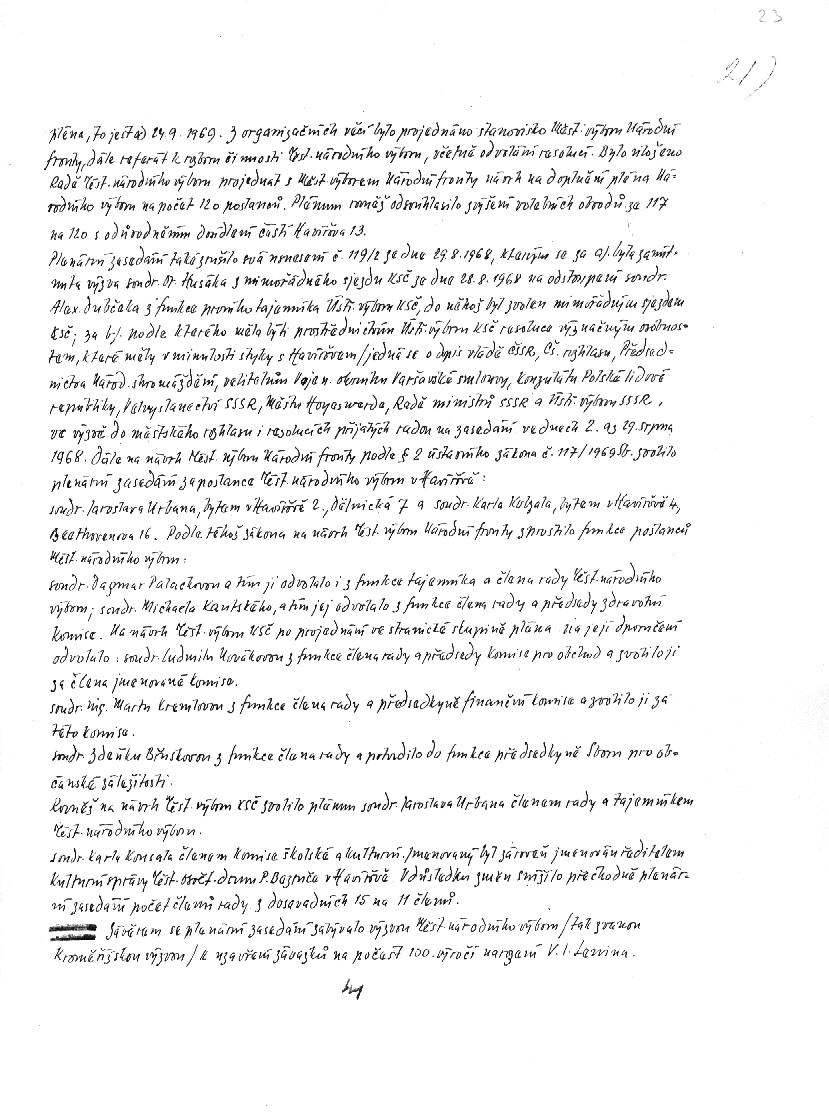 23
21)
pléna, to jest až 24.9. 1969. Z organizačních věcí bylo projednáno stanovisko Měst. výboru Národní
fronty, dále referát k rozboru činnosti Měst. národního výboru, včetně odvolání resolucí. Bylo uloženo
Radě Měst. národního výboru projednat s Měst. výborem Národní fronty návrh na doplnění pléna Ná-
rodního výboru na počet 120 poslanců. Plénum rovněž odsouhlasilo zvýšení volebních obvodů ze 117
na 120 s odůvodněním osídlení části Havířova 13.
Plenární zasedání také zrušilo své usnesení č. 119/2 ze dne 29.8.1968, kterým se za a/. byla zamít-
nuta výzva soudr. Dr. Husáka z mimořádného sjezdu KSČ ze dne 28.8.1968 na odstoupení soudr.
Alex. Dubčeka z funkce prvního tajemníka Ústř. výboru KSČ, do něhož byl zvolen mimořádným sjezdem
KSČ; za b/. podle kterého měla býti prostřednictvím Ústř. výboru KSČ resoluce význačným osobnos-
tem, které měly v minulosti styky s Havířovem /jedná se o dopis vládě ČSSR, Čs. rozhlasu, Předsed-
nictvu Národ. shromáždění, velitelům Vojen. okruhu Varšavské smlouvy, Konzulátu Polské lidové
republiky, Velvyslanectví SSSR, Městu Hoyaswerda, Radě ministrů SSSR a Ústř. výboru SSSR,
ve výzvě do městského rozhlasu i resolucích přijatých radou na zasedání ve dnech 2. až 29. srpna
1968. Dále na návrh Měst. výboru Národní fronty podle § 2 ústavního zákona č. 117/1969 Sb. zvolilo
plenární zasedání za poslance Měst. národního výboru v Havířově:
soudr. Jaroslava Urbana, bytem v Havířově 2., Dělnická 7 a soudr. Karla Kolzala, bytem v Havířově 4,
Beethovenova 16. Podle téhož zákona na návrh Měst. výboru Národní fronty zprostilo funkce poslanců
Měst. národního výboru:
soudr. Dagmar Palackovou a tím ji odvolalo i z funkce tajemníka a člena rady Měst. národního
výboru; soudr. Michaela Kautského, a tím jej odvolalo z funkce člena rady a předsedy zdravotní
komise. Na návrh Měst. výboru KSČ po projednání ve stranické skupině pléna na její doporučení
odvolalo: soudr. Ludmilu Novákovou z funkce člena rady a předsedy komise pro obchod a zvolilo ji
za člena jmenované komise.
soudr. ing. Martu Kremlovou z funkce člena rady a předsedkyně finanční komise a zvolilo ji za
této komise.
soudr. Zdeňku Břuskovou z funkce člena rady a potvrdilo do funkce předsedkyně Sboru pro ob-
čanské záležitosti.
Rovněž na návrh Měst. výboru KSČ zvolilo plénum soudr. Jaroslava Urbana členem rady a tajemníkem
Měst. národního výboru.
soudr. Karla Konsala členem komise školské a kulturní. Jmenovaný byl zároveň jmenován ředitelem
Kulturní správy Měst. osvět. domu P. Bezruče v Havířově. V důsledku změn snížilo přechodně plenár-
ní zasedání počet členů rady z dosavadních 15 na 11 členů.
Závěrem se plenární zasedání zabývalo výzvou Měst. národního výboru /tak zvanou
Kroměřížskou výzvou/ k uzavření závazků na počest 100. výročí narození V. I. Lenina.